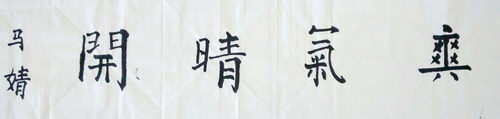 爽氣晴開
马婧